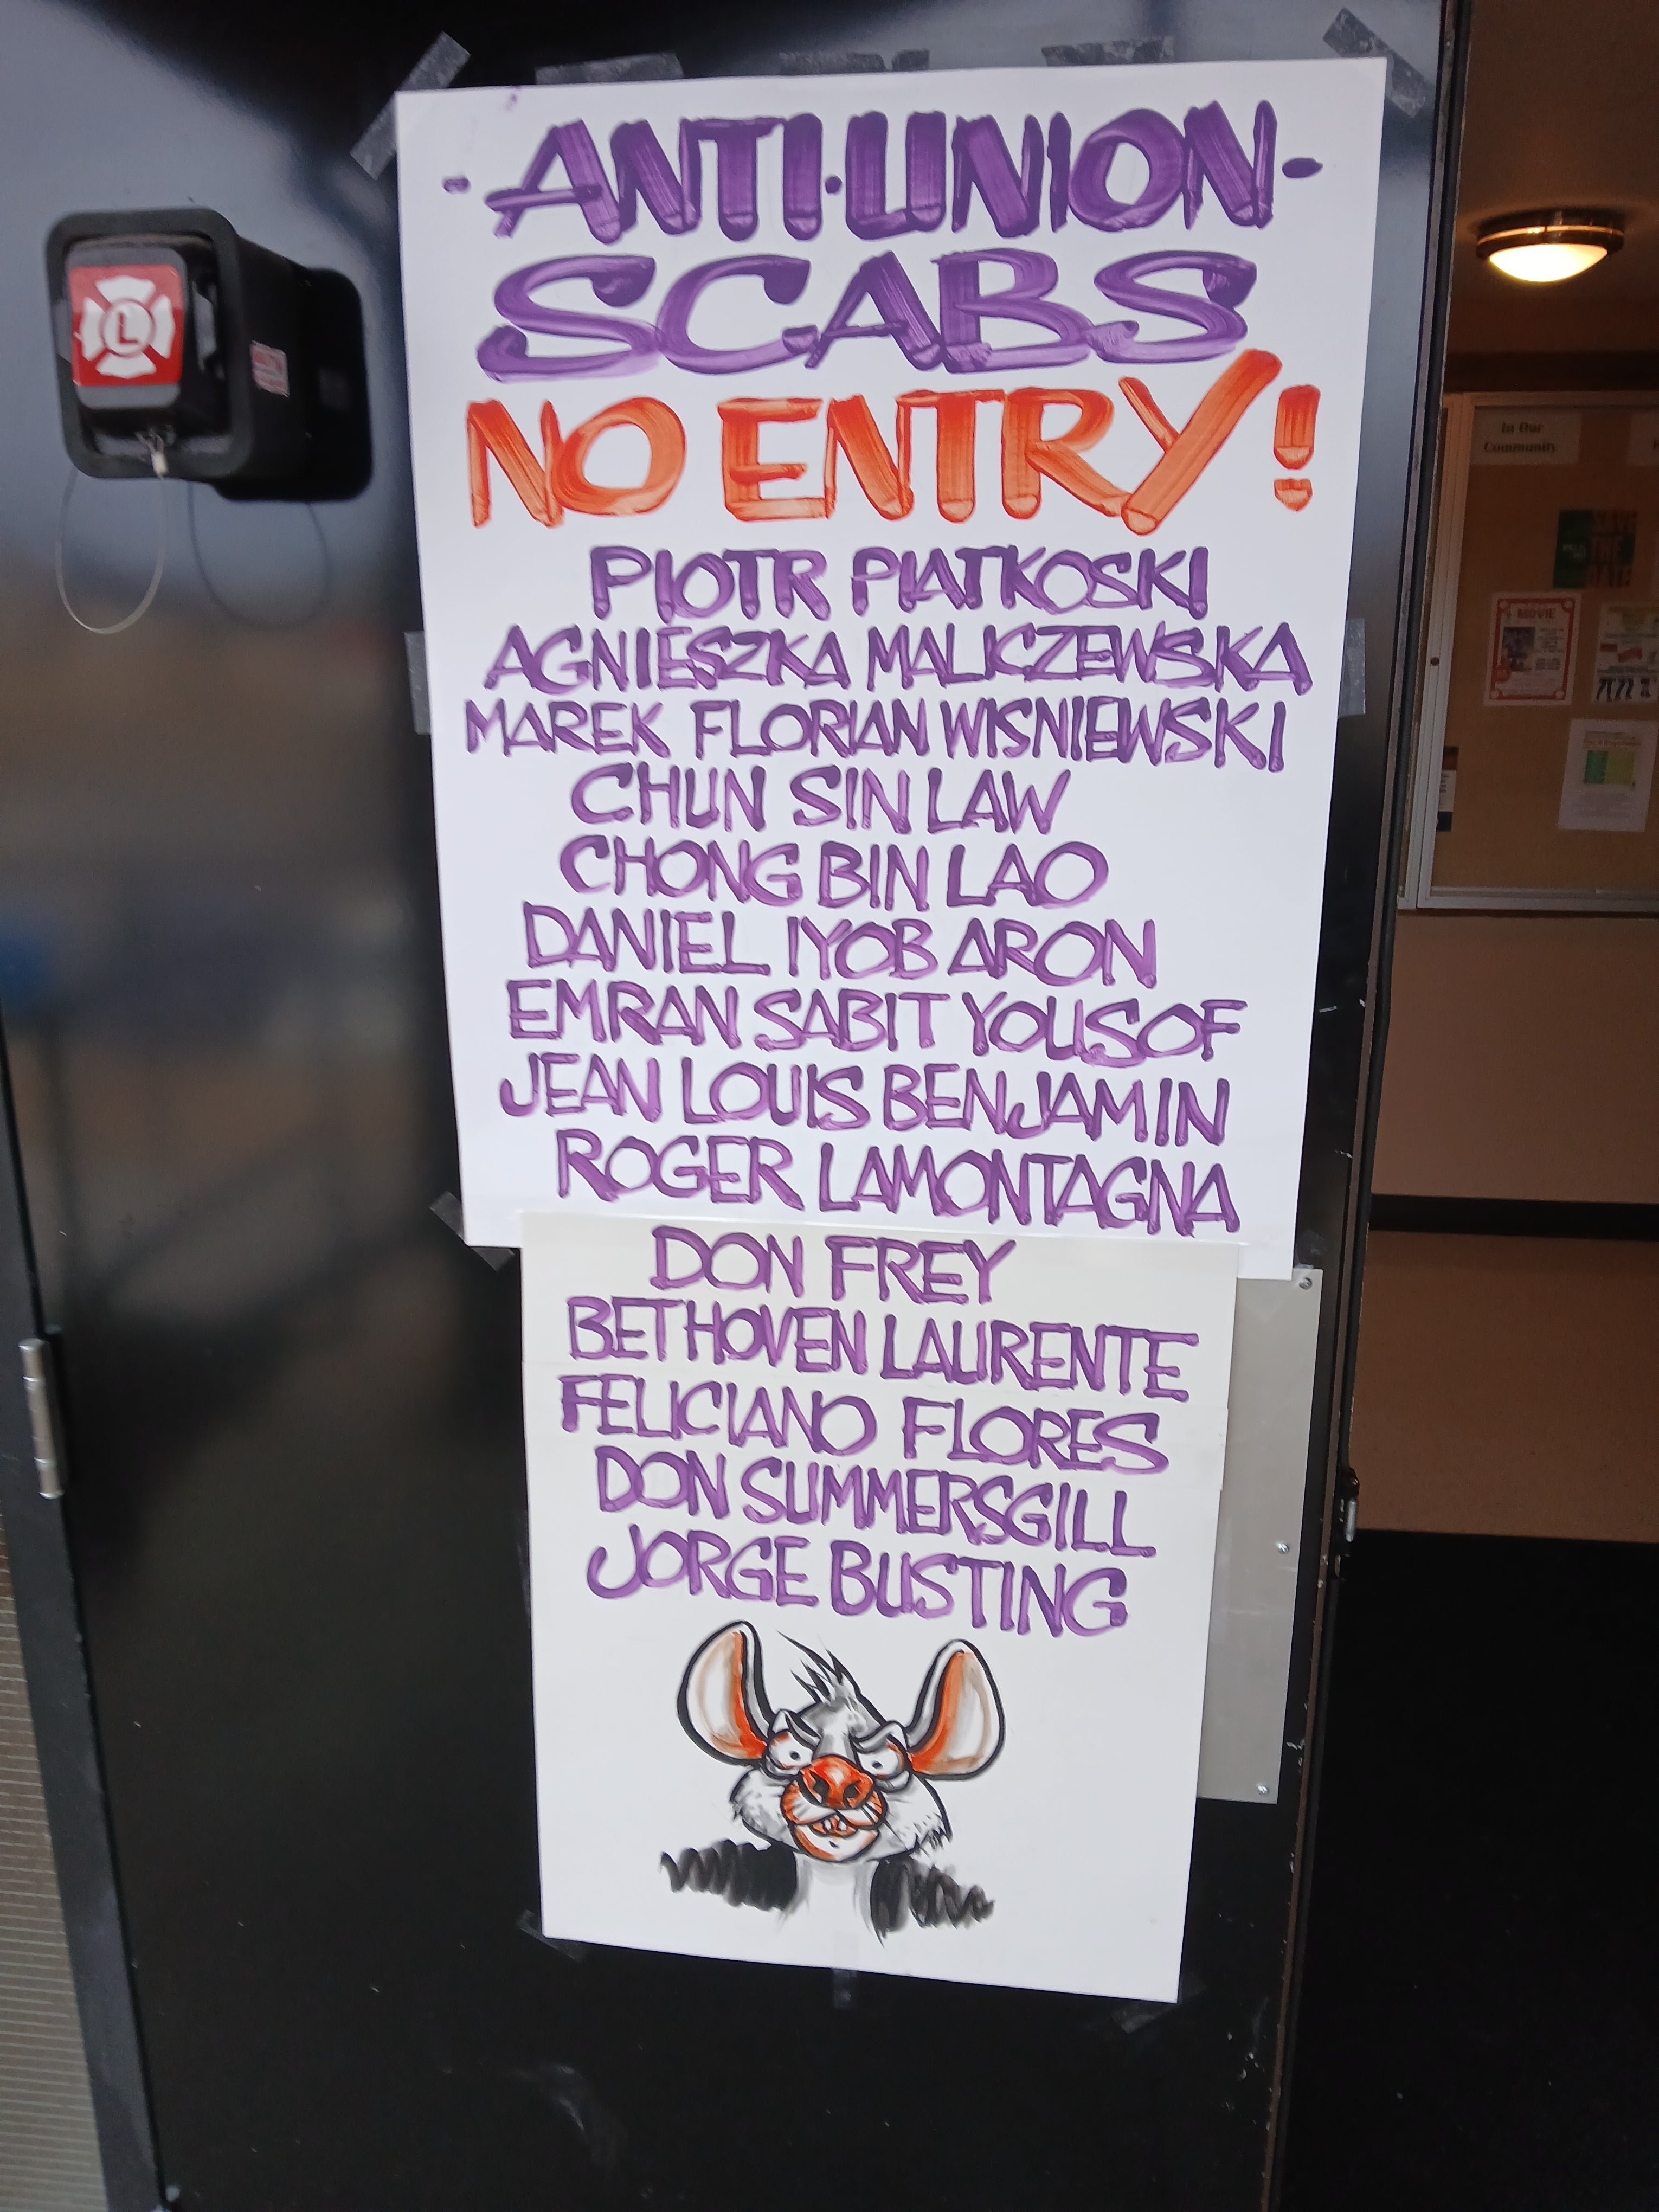 -ANTI-UNION-
SCABS
NO ENTRY!
PIOTR PIATKOSKI
AGNIESZKA MALICZEWSKA
MAREK FLORIAN WISNIEWSKI
CHUN SIN LAW
CHONG BIN LAO
DANIEL IYOB ARON
EMRAN SABIT YOUSOF
JEAN LOUIS BENJAMIN
ROGER LAMONTAGNA
DON FREY
BETHOVEN LAURENTE
FELICIANO FLORES
DON SUMMERSGILL
JORGE BUSTING
L
In Our
Community
MOVIE